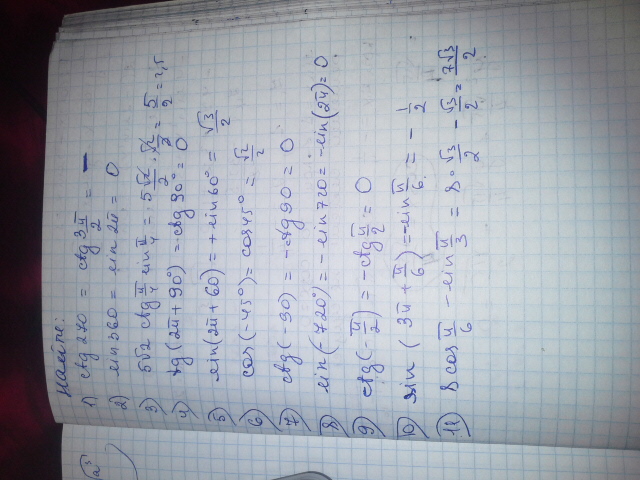 Найти:
1) ctg 270 = ctg 3π/2 = –
2) sin 360 = sin 2π = 0
3) 5√2 ctg π/4 sin π/4 = 5√2/2 · √2/2 = 5/2 = 2,5
4) tg (2π + 90°) = -ctg 90° = 0
5) sin(2π + 60) = + sin 60° = √3/2
6) cos (-45°) = cos 45° = √2/2
7) ctg (-90) = -ctg 90 = 0
8) sin(-720°) = - sin 720 = -sin(2π) = 0
9) ctg (-π/2) = -ctg π/2 = 0
10) sin (3π + π/6) = -sin π/6 = - 1/2
11) 8 cos π/6 - sin π/3 = 8 · √3/2 - √3/2 = 7√3/2